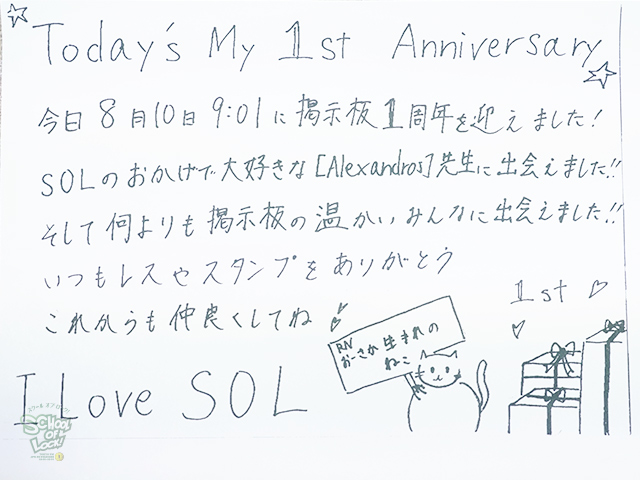 Today's My 1st Anniversary
今日8月10日9:01に掲示板1周年を迎えました!
SOLのおかげで大好きな[Alexandros]先生に出会えました!!
そして何よりも掲示板の温かいみんなに出会えました!!
いつもレスやスタンプをありがとう
これからも仲良くしてね
1st
RN
おーさか生まれの
ねこ
I Love SOL
SCHOOL
OF
LOCK!